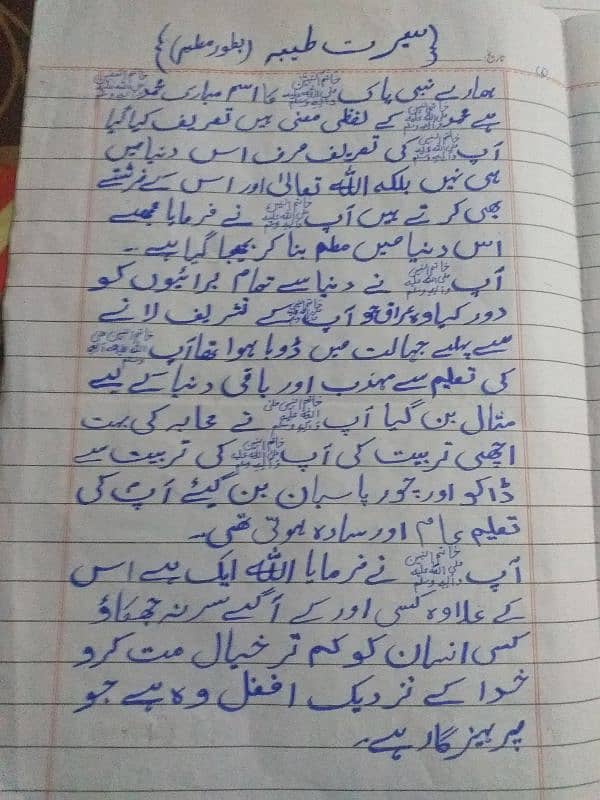 {سیرت طیبہ (بطور معلم)}
تاریخ
ہمارے نبی پاک خاتم النبیین صلی اللہ علیہ وآلہ وسلم کا اسم مبارک محمد خاتم النبیین صلی اللہ علیہ وآلہ وسلم
ہے محمد خاتم النبیین صلی اللہ علیہ وآلہ وسلم کے لفظی معنی ہیں تعریف کیا گیا
آپ خاتم النبیین صلی اللہ علیہ وآلہ وسلم کی تعریف صرف اس دنیا میں
ہی نہیں بلکہ اللہ تعالیٰ اور اس کے فرشتے
بھی کرتے ہیں آپ خاتم النبیین صلی اللہ علیہ وآلہ وسلم نے فرمایا مجھے
اس دنیا میں معلم بنا کر بھیجا گیا ہے ۔۔
آپ خاتم النبیین صلی اللہ علیہ وآلہ وسلم نے دنیا سے تمام برائیوں کو
دور کیا وہ عراق جو آپ خاتم النبیین صلی اللہ علیہ وآلہ وسلم کے تشریف لانے
سے پہلے جہالت میں ڈوبا ہوا تھا آپ خاتم النبیین صلی اللہ علیہ وآلہ وسلم
کی تعلیم سے مہذب اور باقی دنیا کے لیے
مثال بن گیا آپ خاتم النبیین صلی اللہ علیہ وآلہ وسلم نے صحابہ کی بہت
اچھی تربیت کی آپ خاتم النبیین صلی اللہ علیہ وآلہ وسلم کی تربیت سے
ڈاکو اور چور پاسبان بن گئے آپؐ کی
تعلیم عام اور سادہ ہوتی تھی۔
آپ خاتم النبیین صلی اللہ علیہ وآلہ وسلم نے فرمایا اللہ ایک ہے اس
کے علاوہ کسی اور کے آگے سر نہ جھکاؤ
کسی انسان کو کم تر خیال مت کرو
خدا کے نزدیک افضل وہ ہے جو
پرہیزگار ہے۔